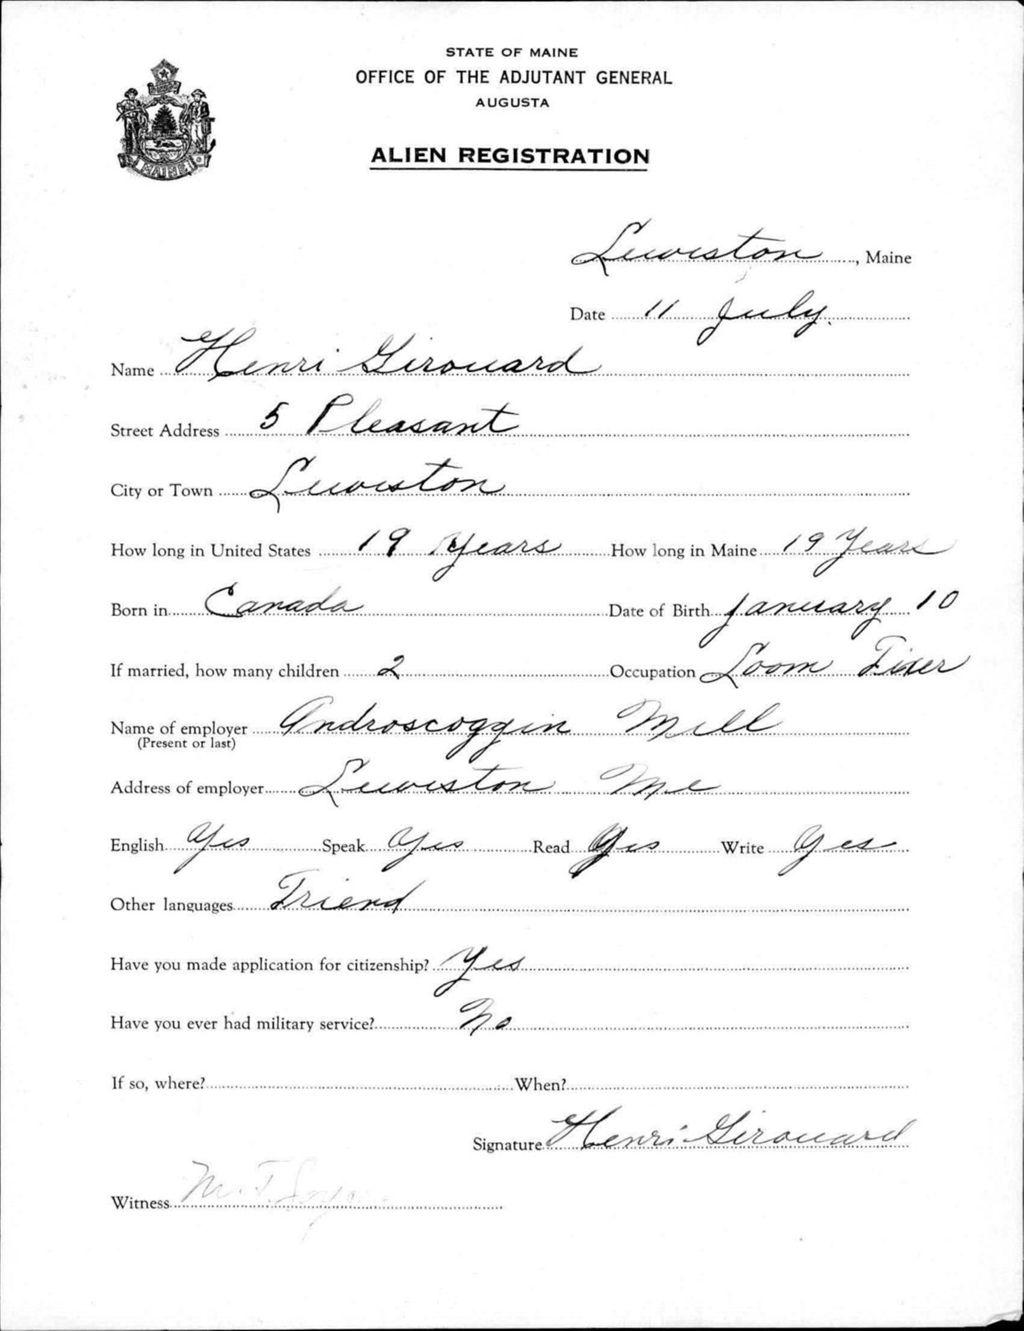 STATE OF MAINE
OFFICE OF THE ADJUTANT GENERAL
AUGUSTA
ALIEN REGISTRATION
MAINE
Lewiston, Maine
Date 11 July.
Name Henri Girouard
Street Address 5 Pleasant
City or Town Lewiston
How long in United States 19 Years How long in Maine 19 Years
Born in Canada Date of Birth January 10
If married, how many children 2 Occupation Loom Fixer
Name of employer Androscoggin Mill
(Present or last)
Address of employer Lewiston Me
English Yes Speak Yes Read Yes Write Yes
Other languages Friend
Have you made application for citizenship? Yes
Have you ever had military service? No
If so, where? When?
Signature Henri Girouard
Witness M. T.